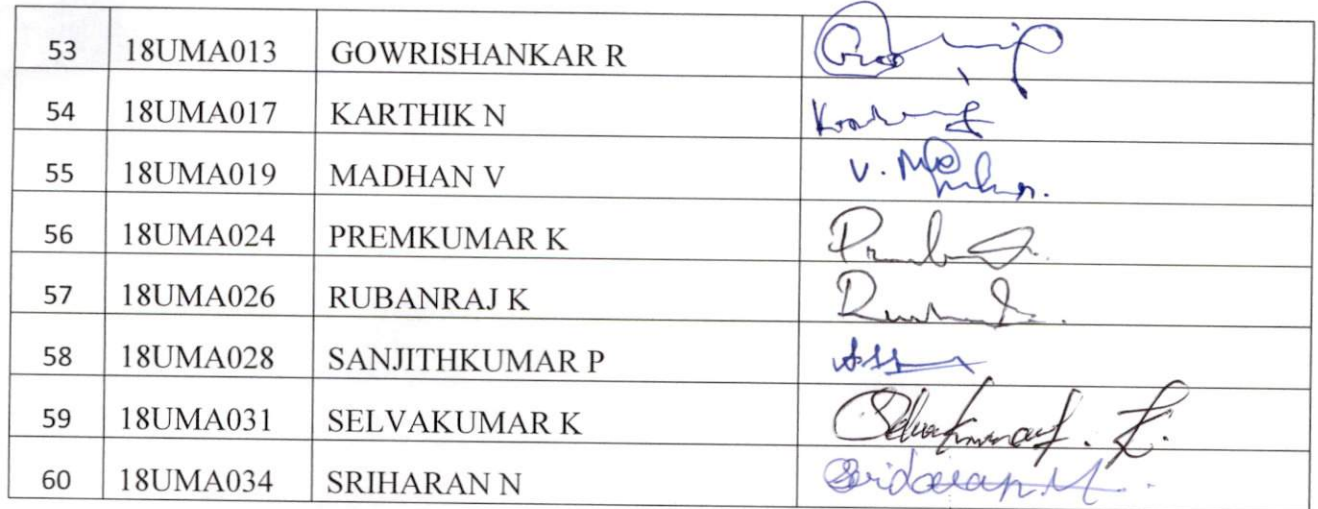 53 18UMA013 GOWRISHANKAR R
54 18UMA017 KARTHIK N
55 18UMA019 MADHAN V V.
56 18UMA024 PREMKUMAR K
57 18UMA026 RUBANRAJ K
58 18UMA028 SANJITHKUMAR P
59 18UMA031 SELVAKUMAR K Selvakumar. K.
60 18UMA034 SRIHARAN N